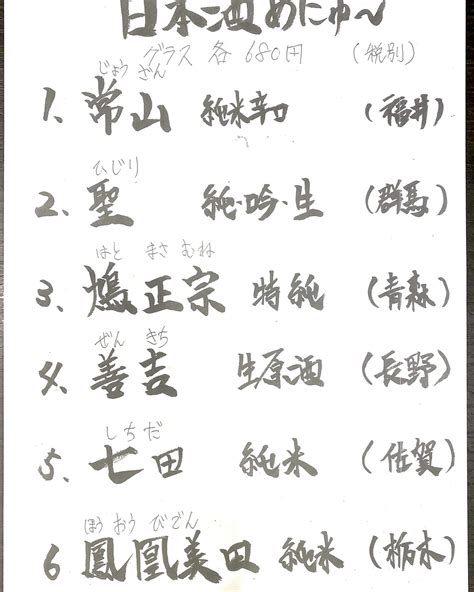 日本酒めにゅ〜
グラス 各680円 (税別)
じょう ざん
1、常山 純米辛口 (福井)
ひじり
2、聖 純・吟・生 (群馬)
はと まさ むね
3、鳩正宗 特純 (青森)
ぜん きち
4、善吉 生原酒 (長野)
しち だ
5、七田 純米 (佐賀)
ほう おう びでん
6 鳳凰美田 純米 (栃木)